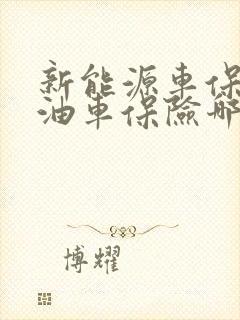 新能源車保
油車保險哪
博耀